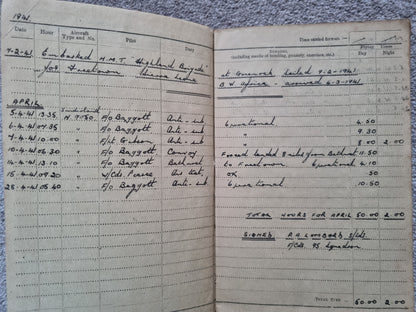 1941.
Date Hour Aircraft Type and No. Pilot Duty
7-2-41 Embarked H.M.T "Highland Brigade"
for Freetown Sierra Leone
APRIL
Sunderland
5-4-41 13.35 N.9050 F/O Baggott Anti-sub
6-4-41 07.35 " F/O Baggott Anti-sub
9-4-41 10.00 " F/Lt Anti-sub
10-4-41 06.40 " F/O Baggott Convoy
14-4-41 13.10 " F/O Baggott Bathurst
15-4-41 09.20 " S/Ldr Pearce Air Test
25-4-41 05.40 " F/O Baggott Anti-sub
Time carried forward:—
Remarks
(including results of bombing, gunnery, exercises, etc.)
Flying Times
Day Night
at Gourock sailed 9-2-1941
B.W. Africa — arrived 4-3-1941
Operational 4.50
" 9.30
" 8.00 2.00
Forced landed 8 miles from Bathurst 11.50
to Freetown Operational 4.10
OK .50
Operational 10.50
TOTAL HOURS FOR APRIL 50.00 2.00
SIGNED F.A. LOMBARD S/Ldr
O/Cdg. 95 Squadron
TOTAL TIME 50.00 2.00